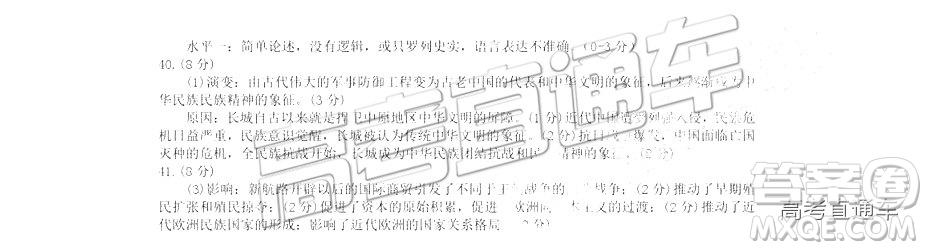 水平一：简单论述，没有逻辑，或只罗列史实，语言表达不准确。（0-3分）
40.(8分)
(1)演变：由古代伟大的军事防御工程变为古老中国的代表和中华文明的象征，后来逐渐成为中
华民族民族精神的象征。(3分)
原因：长城自古以来就是捍卫中原地区中华文明的屏障。(1分)近代中国遭受列强入侵，民族危
机日益严重，民族意识觉醒，长城被认为传统中华文明的象征。(2分)抗日 爆发，中国面临亡国
灭种的危机，全民族抗战开始，长城成为中华民族团结抗战和 精神的象征。(2分)
41.(8分)
(3)影响：新航路开辟以后的国际商贸引发了不同于 战争的 战争；(2分)推动了早期殖
民扩张和殖民掠夺；(2分)推动了资本的原始积累，促进 欧洲向 本主义的过渡；(2分)推动了近
代欧洲民族国家的形成；影响了近代欧洲的国家关系格局 (2分)
高考直通车
答案圈
高考直通车
MXQE.COM